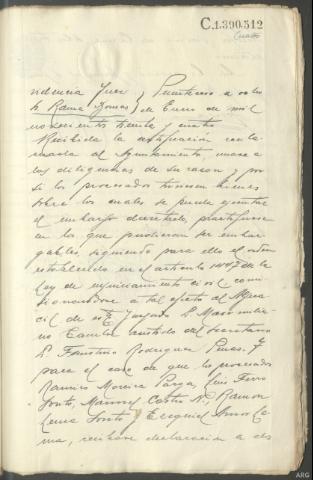 C.1.390.512
Cuatro
Providencia Juez } Puenteareas a ocho
Sr Rama Gomez } de Enero de mil
novecientos treinta y cuatro
Recibida la certificación recla-
mada al Ayuntamiento, unase a
las diligencias de su razon y por
si los procesados tuviesen bienes
sobre los cuales se pueda ejecutar
el embargo decretado, practiquese
en los que pudieran ser embar-
gables, siguiendo para ello el orden
establecido en el articulo 1447 de la
Ley de enjuiciamiento civil comi-
sionandose a tal efecto al Algua-
cil de este Juzgado D. Maximi-
no asistido del Secretario
D. Faustino Rodriguez Y
para el caso de que los procesados
Ramiro Moreira Parga, Luis Ferro
Souto, Manuel Castro N., Ramon
Lema Souto y Ezequiel Amor Le-
ma, recibase declaración a dos
ARG